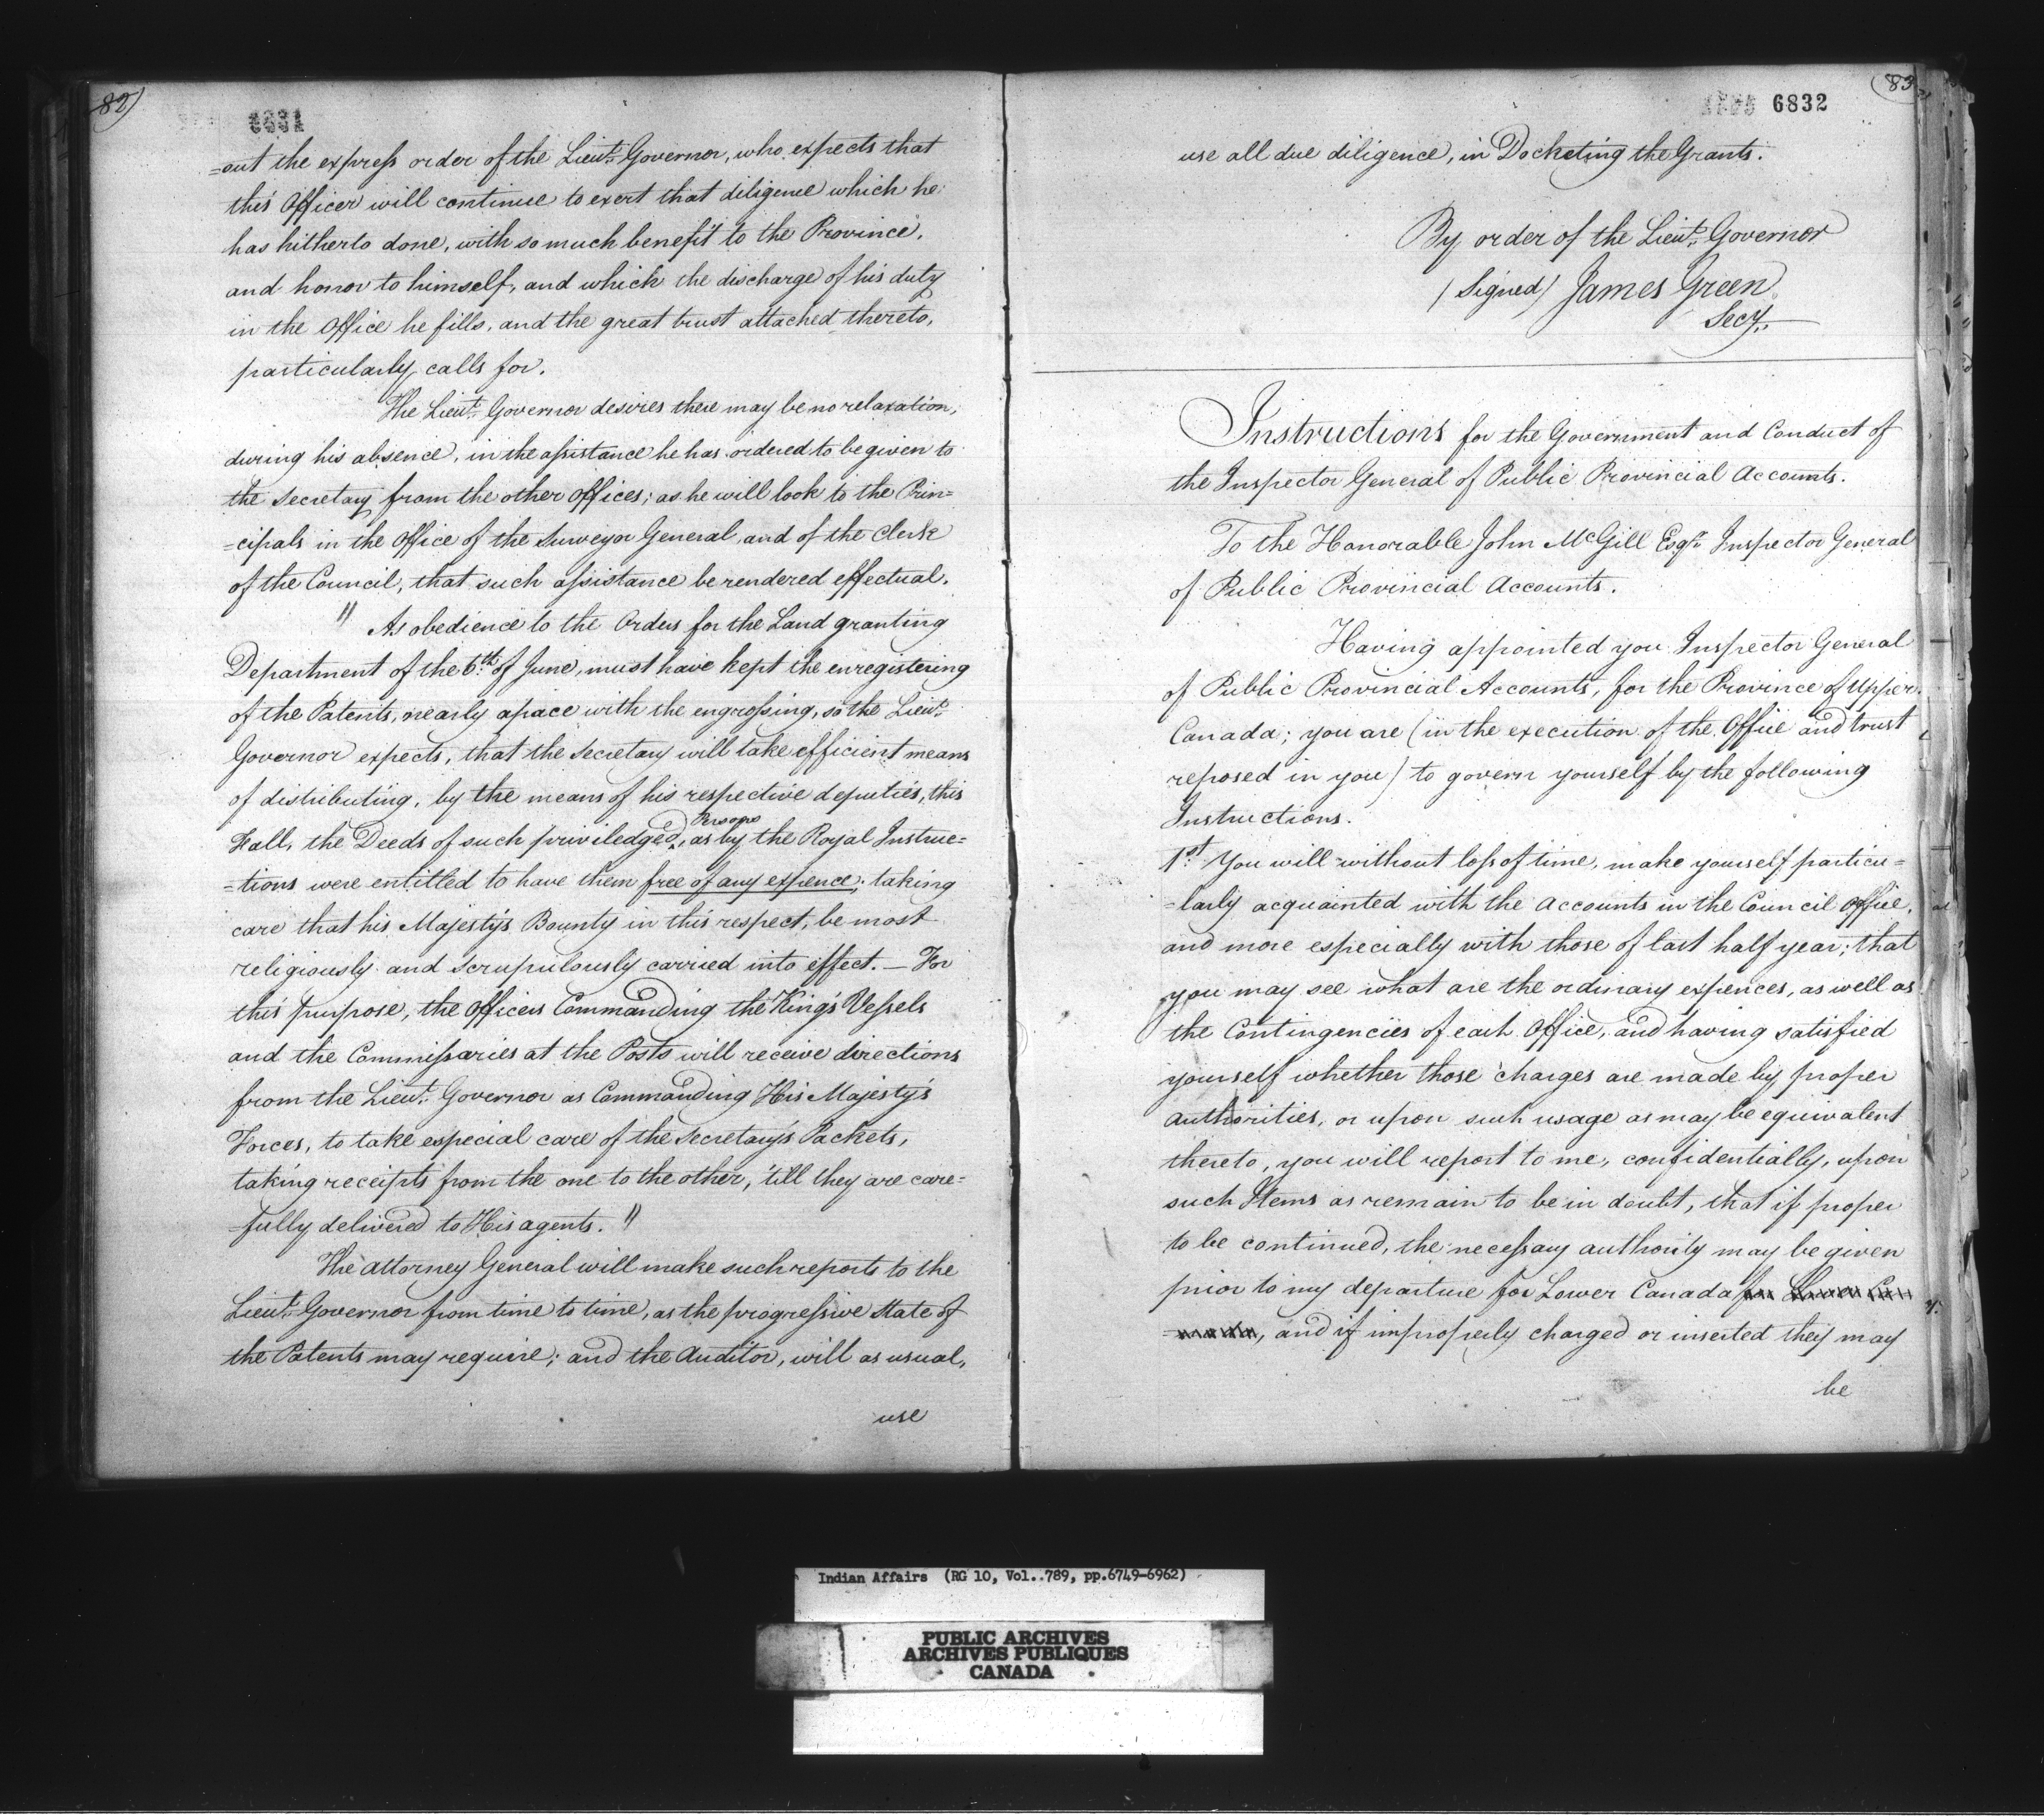 82)
6831
=out the express order of the Lieut. Governor, who expects that
this Officer will continue to exert that diligence which he
has hitherto done, with so much benefit to the Province,
and honor to himself, and which the discharge of his duty
in the Office he fills, and the great trust attached thereto,
particularly calls for.
The Lieut. Governor desires there may be no relaxation,
during his absence, in the assistance he has ordered to be given to
the Secretary from the other Offices; as he will look to the Prin=
=cipals in the Office of the Surveyor General, and of the Clerk
of the Council, that such assistance be rendered effectual.
" As obedience to the Orders for the Land granting
Department of the 6th of June, must have kept the enregistering
of the Patents, nearly apace with the engrossing, so the Lieut.
Governor expects, that the Secretary will take efficient means
of distributing, by the means of his respective deputies, this
Persons
Fall, the Deeds of such priviledged, as by the Royal Instruc=
=tions were entitled to have them free of any expence; taking
care that his Majesty's Bounty in this respect, be most
religiously and scrupulously carried into effect. — For
this purpose, the Officers Commanding the King's Vessels
and the Commissaries at the Posts will receive directions
from the Lieut. Governor as Commanding His Majesty's
Forces, to take especial care of the Secretary's Packets,
taking receipts from the one to the other, 'till they are care=
=fully delivered to His agents. "
The Attorney General will make such reports to the
Lieut. Governor from time to time, as the progressive State of
the Patents may require; and the Auditor, will as usual,
use
(83
6832
use all due diligence, in Docketing the Grants.
By order of the Lieut. Governor
/Signed/ James Green
Secy.
Instructions for the Government and Conduct of
the Inspector General of Public Provincial Accounts.
To the Honorable John McGill Esqr. Inspector General
of Public Provincial Accounts.
Having appointed you Inspector General
of Public Provincial Accounts, for the Province of Upper
Canada; you are (in the execution of the Office and trust
reposed in you) to govern yourself by the following
Instructions.
1st. You will without loss of time, make yourself particu=
=larly acquainted with the Accounts in the Council Office,
and more especially with those of last half year; that
you may see what are the ordinary expences, as well as
the Contingencies of each Office, and having satisfied
yourself whether those charges are made by proper
authorities, or upon such usage as may be equivalent
thereto, you will report to me, confidentially, upon
such Items as remain to be in doubt, that if proper
to be continued, the necessary authority may be given
prior to my departure for Lower Canada for Lower Can
, and if improperly charged or inserted they may
be
Indian Affairs (RG 10, Vol..789, pp.6749-6962)
PUBLIC ARCHIVES
ARCHIVES PUBLIQUES
CANADA